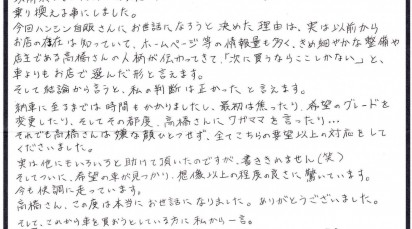 乗り換える事にしました。
今回ハンシン自販さんに、お世話になろうと決めた理由は、実は以前から
お店の存在は知っていて、ホームページ等の情報量も多く、きめ細やかな整備や
店主である高橋さんの人柄が伝わってきて、「次に買うならここしかない」と、
車よりもお店で選んだ形と言えます。
そして結論から言うと、私の判断は正かったと言えます。
納車に至るまでは時間もかかりましたし、最初は焦ったり、希望のグレードを
変更したり、そしてその都度、高橋さんにワガママを言ったり…
それでも高橋さんは嫌な顔ひとつせず、全てこちらの要望以上の対応をして
くださいました。
実は他にもいろいろと助けて頂いたのですが、書ききれません(笑)
そしてついに、希望の車が見つかり、想像以上の程度の良さに驚いています。
今も快調に走っています。
高橋さん、この度は本当にお世話になりました。ありがとうございました。
そして、これから車を買おうとしている方に私から一言。